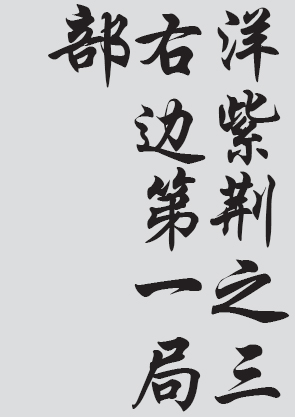 洋紫荆之三
右边第一局
部